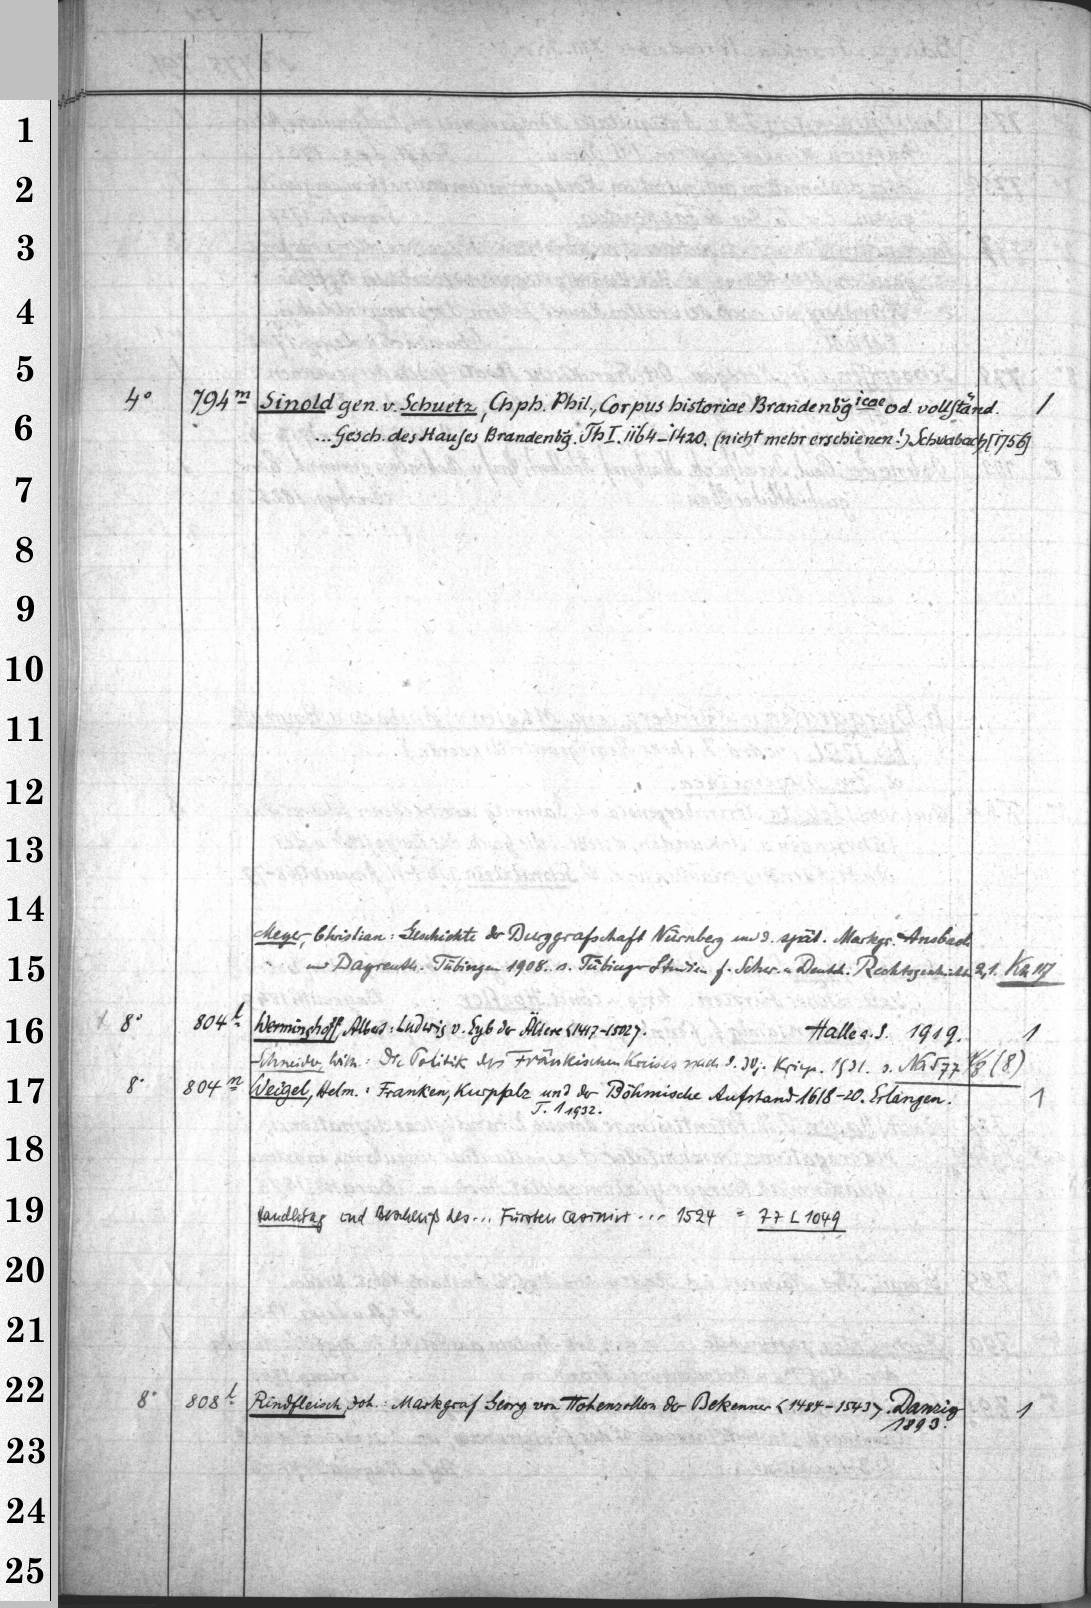 1
2
3
4
5
4° 794m Sinold gen. v. Schuetz, Chph. Phil., Corpus historiae Brandenbg icae od. vollständ. 1
6
...Gesch. des Hauses Brandenbg. Th I. 1164–1420. (nicht mehr erschienen!) Schwabach [1756]
7
8
9
10
11
12
13
14
Meyer, Christian: Geschichte der Burggrafschaft Nürnberg und d. spät. Markgr. Ansbach
15
und Bayreuth. Tübingen 1908. s. Tübinger Studien f. Schw. u. Deutsch. Rechtsgeschichte 2,1. Ka 117
16 8° 804l Werminghoff, Albert: Ludwig v. Eyb der Ältere <1417–1502>. Halle a. S. 1919. 1
Schneider, Wilh.: Die Politik des Fränkischen Kreises nach d. 30j. Kriege. 1931. s. Na 577 (8)
17 8° 804n Weigel, Helm.: Franken, Kurpfalz und der Böhmische Aufstand 1618–20. Erlangen. 1
T. 1 1932.
18
19 Handlung und Beschluß des... Fürsten Casimir ... 1524 = 77 L 1049
20
21
22 8° 808l Rindfleisch, Joh.: Markgraf Georg von Hohenzollern der Bekenner <1484–1543>. Danzig 1
1893.
23
24
25